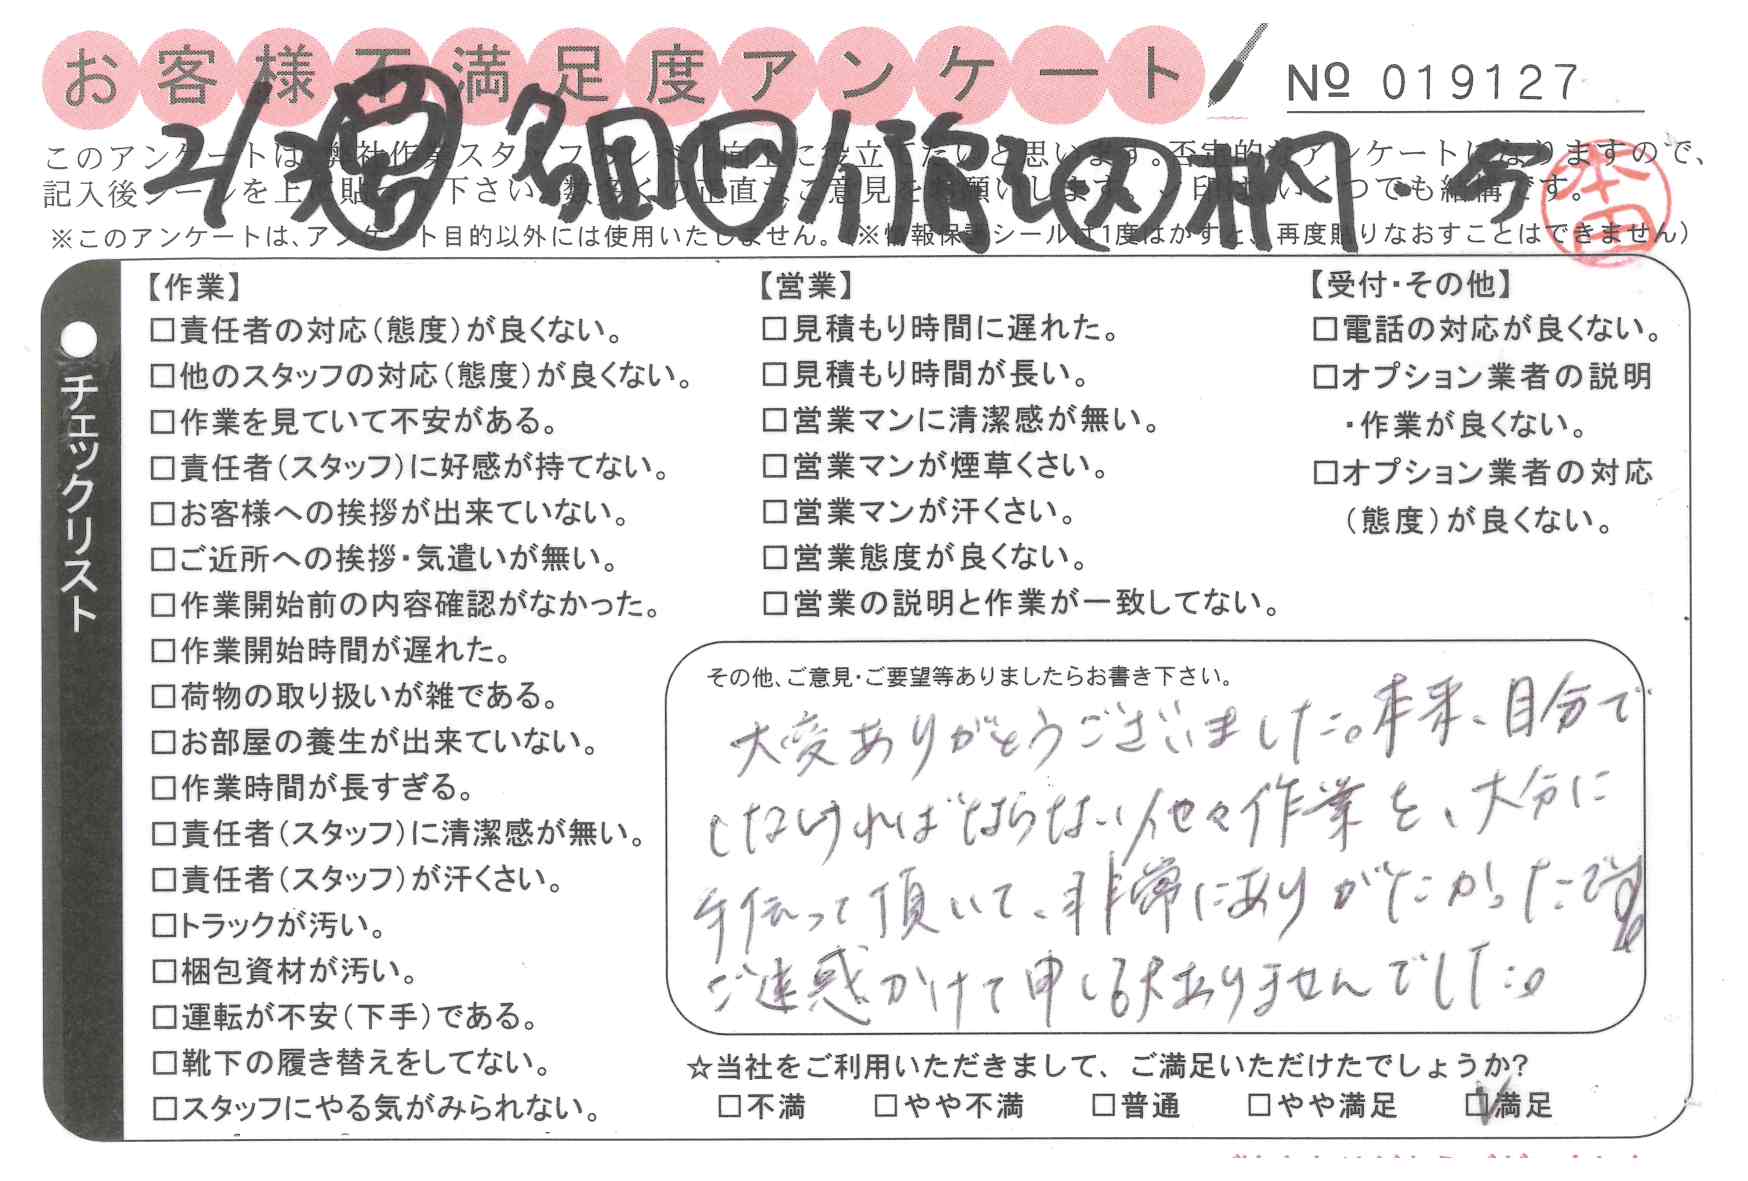 お客様不満足度アンケート
№ 019127
このアンケートは、弊社作業スタッフのレベル向上に役立てたいと思います。否定的なアンケートになりますので、
記入後シールを上に貼って下さい。数多くの正直なご意見をお願いします。✓印はいくつでも結構です。
※このアンケートは、アンケート目的以外には使用いたしません。（※情報保護シールは1度はがすと、再度貼りなおすことはできません）
本田
チェックリスト
【作業】
□責任者の対応（態度）が良くない。
□他のスタッフの対応（態度）が良くない。
□作業を見ていて不安がある。
□責任者（スタッフ）に好感が持てない。
□お客様への挨拶が出来ていない。
□ご近所への挨拶・気遣いが無い。
□作業開始前の内容確認がなかった。
□作業開始時間が遅れた。
□荷物の取り扱いが雑である。
□お部屋の養生が出来ていない。
□作業時間が長すぎる。
□責任者（スタッフ）に清潔感が無い。
□責任者（スタッフ）が汗くさい。
□トラックが汚い。
□梱包資材が汚い。
□運転が不安（下手）である。
□靴下の履き替えをしてない。
□スタッフにやる気がみられない。
【営業】
□見積もり時間に遅れた。
□見積もり時間が長い。
□営業マンに清潔感が無い。
□営業マンが煙草くさい。
□営業マンが汗くさい。
□営業態度が良くない。
□営業の説明と作業が一致してない。
【受付・その他】
□電話の対応が良くない。
□オプション業者の説明
・作業が良くない。
□オプション業者の対応
（態度）が良くない。
その他、ご意見・ご要望等ありましたらお書き下さい。
大変ありがとうございました。本来、自分で
しなければならない他々作業を、大分に
手伝って頂いて、非常にありがたかったです。
ご迷惑かけて申し訳ありませんでした。
☆当社をご利用いただきまして、ご満足いただけたでしょうか？
□不満 □やや不満 □普通 □やや満足 ☑満足